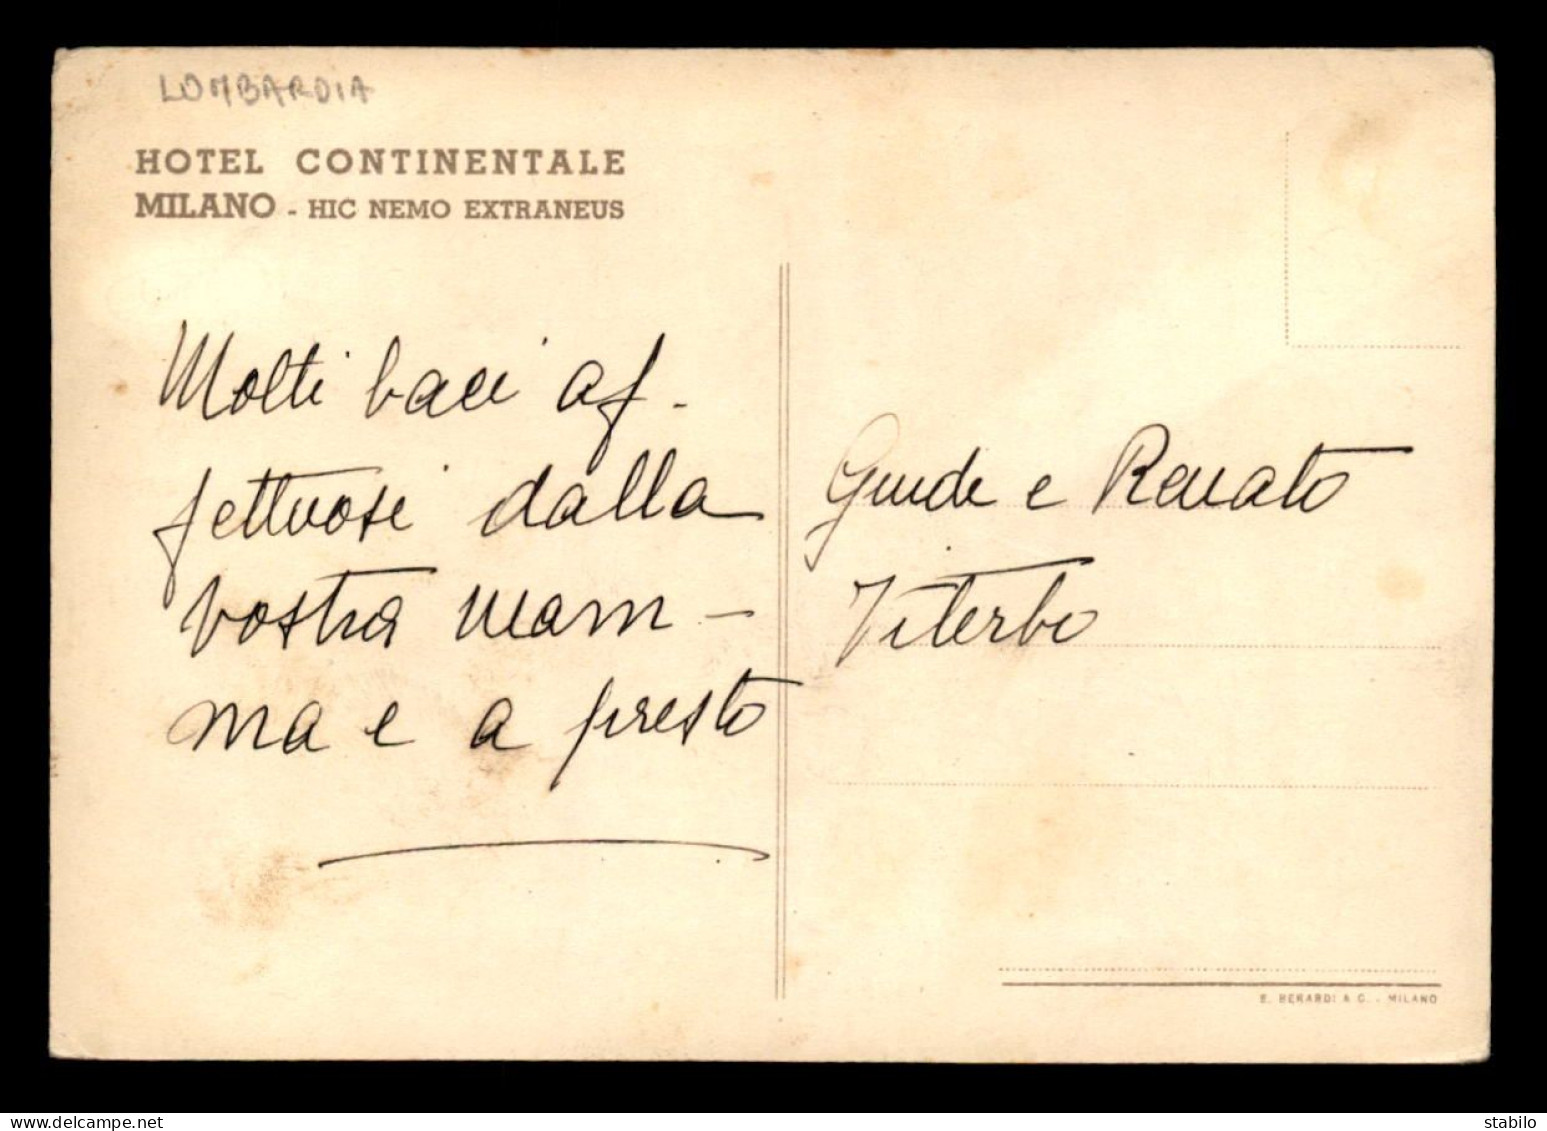 LOMBARDIA
HOTEL CONTINENTALE
MILANO - HIC NEMO EXTRANEUS
Molti baci af-
fettuosi dalla
vostra mam-
ma e a presto
e Renato
Viterbo
E. BERARDI & C. - MILANO
www.delcampe.net
stabilo